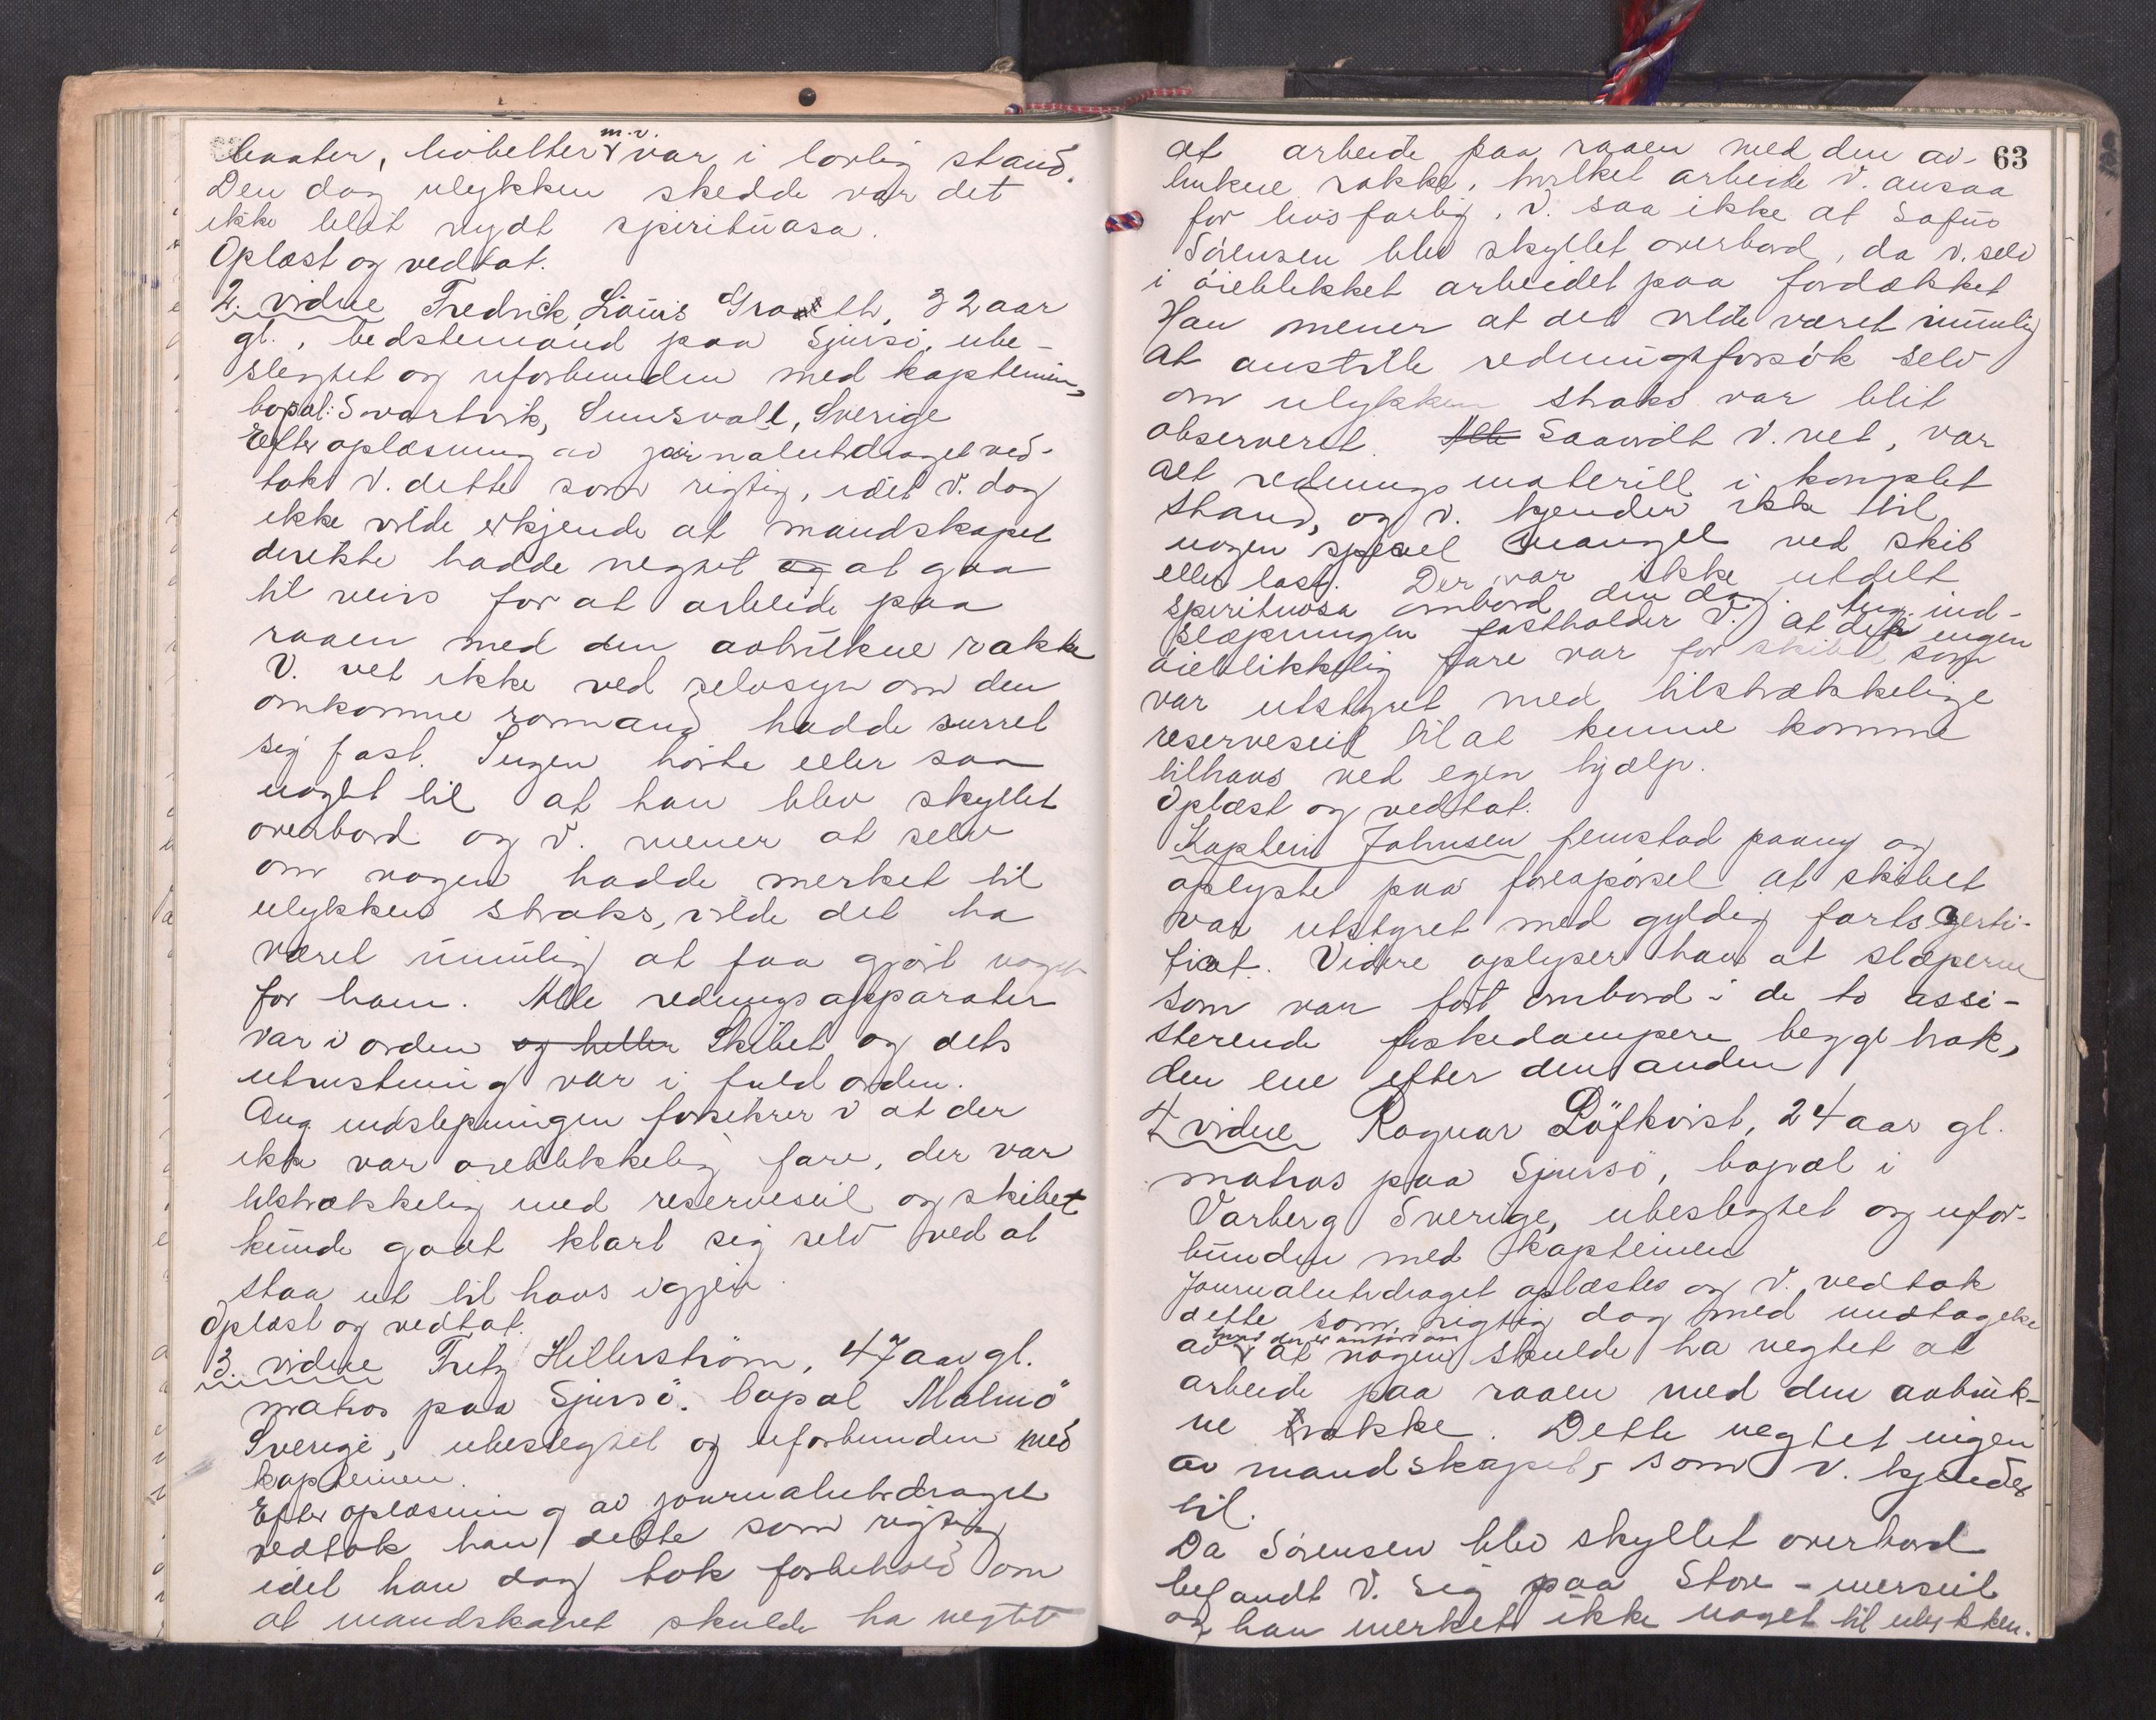 m.v.
baater, livbelter var i lovlig stand.
Den dag ulykken skedde var det
ikke blit nydt spirituosa.
Oplæst og vedtat.
2. vidne Fredrick Louis Graath, 32 aar
gl., bedstemand paa Sjursö, ube-
slegtet og uforbunden med kapteinen,
bopæl: Svartvik, Sunsvall, Sverige
Efter oplæsning av journalutdraget ved-
tok v. dette som rigtig, idet v. dog
ikke vilde erkjende at mandskapet
direkte hadde negtet og at gaa
til veirs for at arbeide paa
raaen med den avbrukne rakke
V. vet ikke ved selvsyn om den
omkomne rormand hadde surret
sig fast. Ingen hörte eller saa
noget til at han blev skyllet
overbord og v. mener at selv
om nogen hadde merket til
ulykken straks, vilde det ha
været umulig at faa gjort noget
for ham. Alle redningsapparater
var i orden og heller Skibet og dets
utrustning var i fuld orden.
Ang indslepningen forsikrer v at der
ikke var øieblikkelig fare, der var
tilstrækkelig med reserveseil og skibet
kunde godt klart sig selv ved at
staa ut til havs igjen.
Oplæst og vedtat.
3. vidne Fritz Hellerström, 47 aar gl.
matros paa Sjursö. bopæl Malmö
Sverige, ubeslegtet og uforbunden med
kapteinen.
Efter oplæsning av journalutdraget
vedtok han dette som rigtig
idet han dog tok forbehold om
at mandskapet skulde ha negtet
63
at arbeide paa raaen med den av-
brukne rakke, hvilket arbeide v. ansaa
for livsfarlig. V. saa ikke at Sofus
Sörensen blev skyllet overbord, da v. selv
i öieblikket arbeidet paa fordækket
Han mener at det vilde været umulig
at anstille redningsforsök selv
om ulykken straks var blit
observeret. Alle Saavidt v. vet, var
alt redningsmateriell i komplet
stand, og v. kjender ikke til
nogen speciel mangel ved skib
eller last. Der var ikke utdelt
spirituosa ombord den dag. Ang. ind-
slæpningen fastholder V. at der ingen
öieblikkelig fare var for skibet som
var utstyret med tilstrækkelige
reserveseil til at kunne komme
tilhavs ved egen hjælp.
Oplæst og vedtat.
Kaptein Johnsen fremstod paany og
oplyste paa forespörsel at skibet
var utstyret med gyldig fartscerti-
fikat. Videre oplyser han at slæperne
som var fört ombord i de to assi-
sterende fiskedampere begge brak,
den ene efter den anden
4 vidne Ragnar Löfkvist, 24 aar gl.
matros paa Sjursö, bopæl i
Varberg Sverige, ubeslegtet og ufor-
bunden med kapteinen
Journalutdraget oplæstes og V. vedtok
dette som rigtig dog med undtagelse
hvad der er anfört om
av at nogen skulde ha negtet at
arbeide paa raaen med den avbruk-
ne rakke. Dette negtet ingen
av mandskapet, som v. kjender
til.
Da Sörensen blev skyllet overbord
befandt V. sig paa Store-merseil
og han merket ikke noget til ulykken.